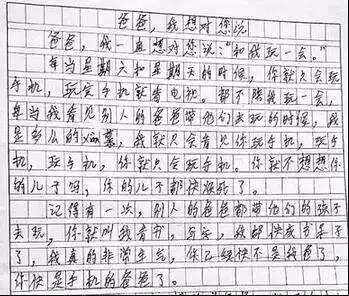 爸爸，我想对您说
爸爸，我一直想对您说："和我玩一会。"
每当星期六和星期天的时候，你就只会玩
手机，玩完手机就看电视。都不陪我玩一会，
每当我看见别人的爸爸带他们去玩的时候，我
是多么的xian慕，我就只会看见你玩手机，玩手
机，玩手机，你就只会玩手机。你就不想想你
的儿子吗，你的儿子都快疯了。
记得有一次，别人的爸爸都带他们的孩子
去玩，你就叫我看书，写字，我都快成书呆子
了，我真的非常生气，你已经快不是我爸了，
你快是手机的爸爸了。